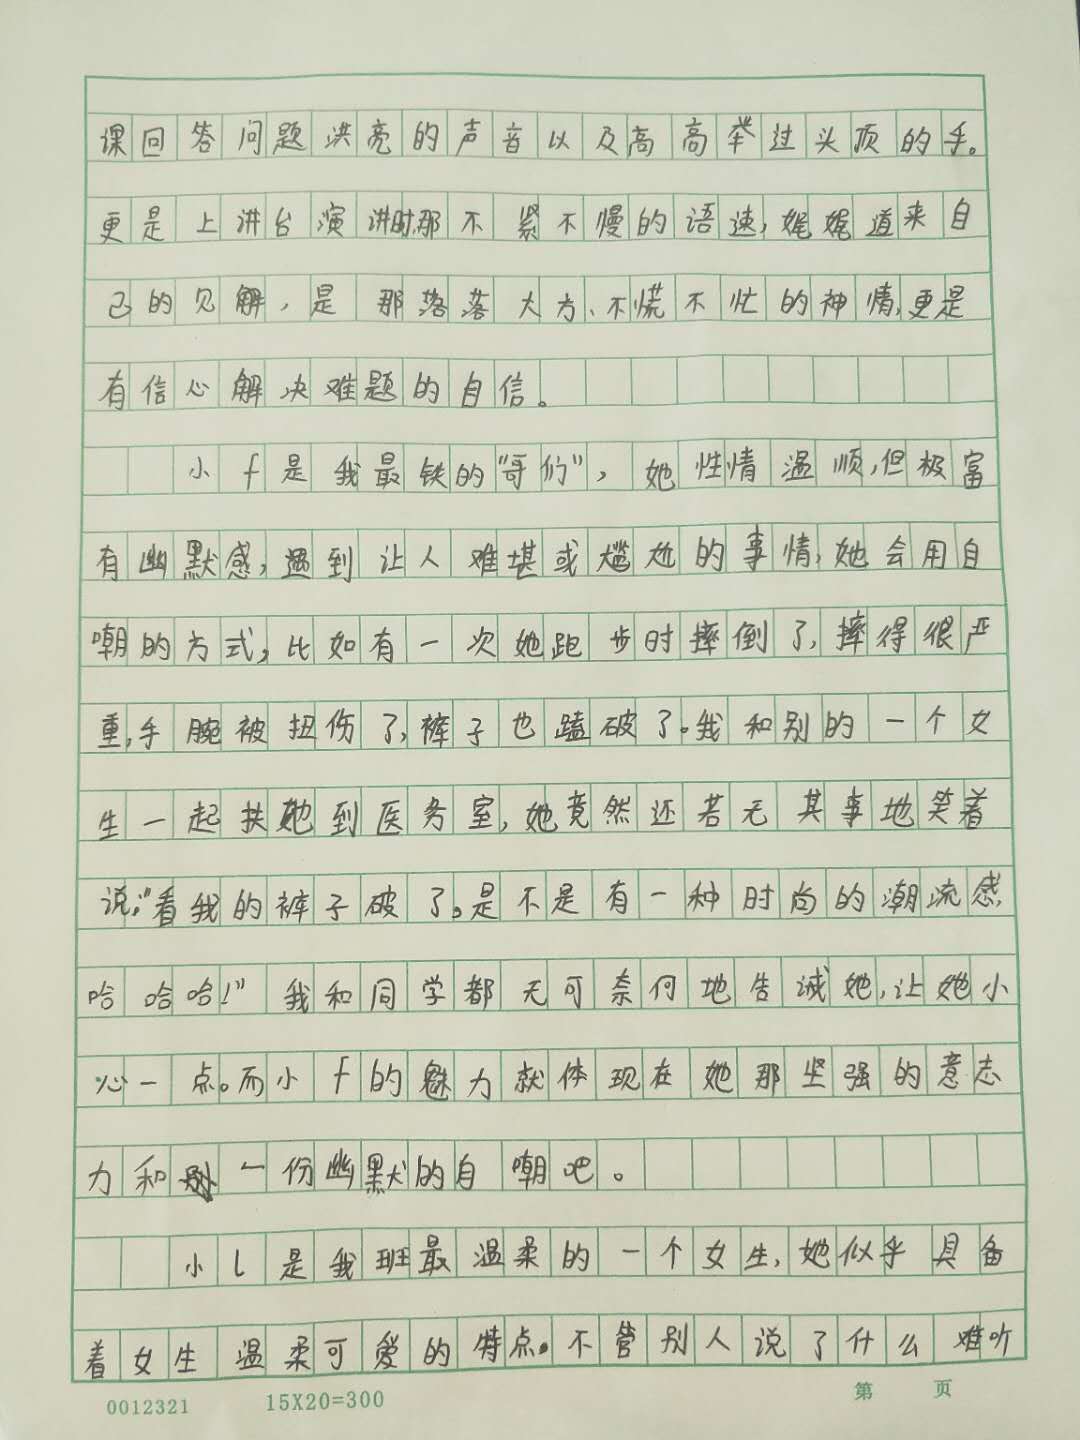 课回答问题洪亮的声音以及高高举过头顶的手。
更是上讲台演讲时,那不紧不慢的语速,娓娓道来自
己的见解,是那落落大方、不慌不忙的神情,更是
有信心解决难题的自信。
小f是我最铁的“哥们”,她性情温顺,但极富
有幽默感,遇到让人难堪或尴尬的事情,她会用自
嘲的方式,比如有一次她跑步时摔倒了,摔得很严
重,手腕被扭伤了,裤子也磕破了。我和别的一个女
生一起扶她到医务室,她竟然还若无其事地笑着
说:“看我的裤子破了。是不是有一种时尚的潮流感,
哈哈哈!”我和同学都无可奈何地告诫她,让她小
心一点。而小f的魅力就体现在她那坚强的意志
力和一份幽默的自嘲吧。
小l是我班最温柔的一个女生,她似乎具备
着女生温柔可爱的特点。不管别人说了什么难听
0012321 15X20=300 第 页